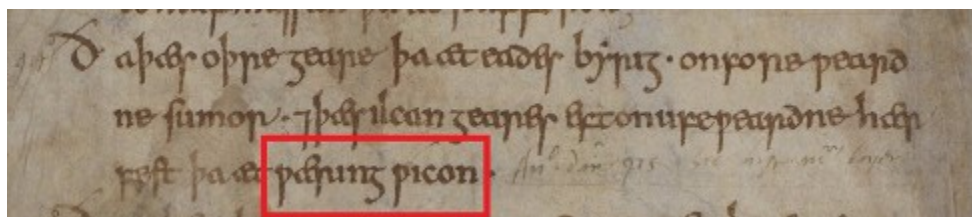 Ða þæs oþre geare þa æt eades byrig · on foreƿeard
ne sumor · ⁊ þæs ilcan geares eft on ufeƿeardne hær
fest þa æt ƿæring ƿicon ·